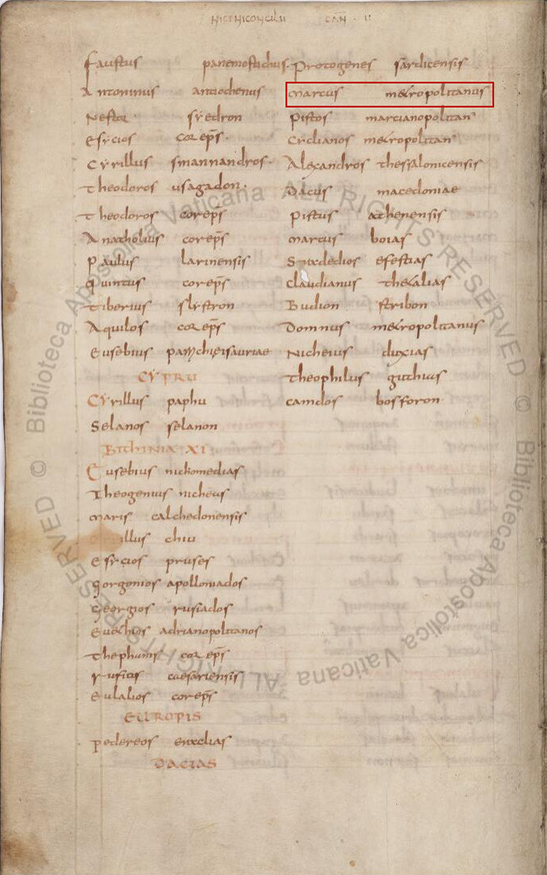 Faustus panemostichus.
Antoninus antiochenus
Nestor syedron
Esycios corep̄s.
Cyrillus smannandros.
Theodoros usagadon.
Theodoros corep̄s
Anatholius corep̄s
Paulus larinensis
Quintus corep̄s
Tiberius slystron
Aquilos corep̄s
Eusebius
CYPRU
Cyrillus paphu
Selanos selanon
BITHINIA XI
Eusebius nickomedias
Theogenius niceus
Maris calchedonensis
chiu
Esycios pruses
Gorgonios apolloniados
Georgios rusiados
Euethios adrianopolitanos
Thephanis corep̄s
Rusticus caesariensis
Eulalios corep̄s
EUROPIS
Pedereos
DACIAS
Protogenes sardicensis
Marcus metropolitanus
Pistos marcianopolitan
Cyclianos metropolitan
Alexandros thessalonicensis
Dacus macedoniae
Pistus athenensis
Marcus boias
efestias
Claudianus thesalias
Budion stribon
Domnus metropolitanus
Nicheius duxias
Theophilus guthias
Camdos bosforon
© Biblioteca Apostolica Vaticana ALL RIGHTS RESERVED